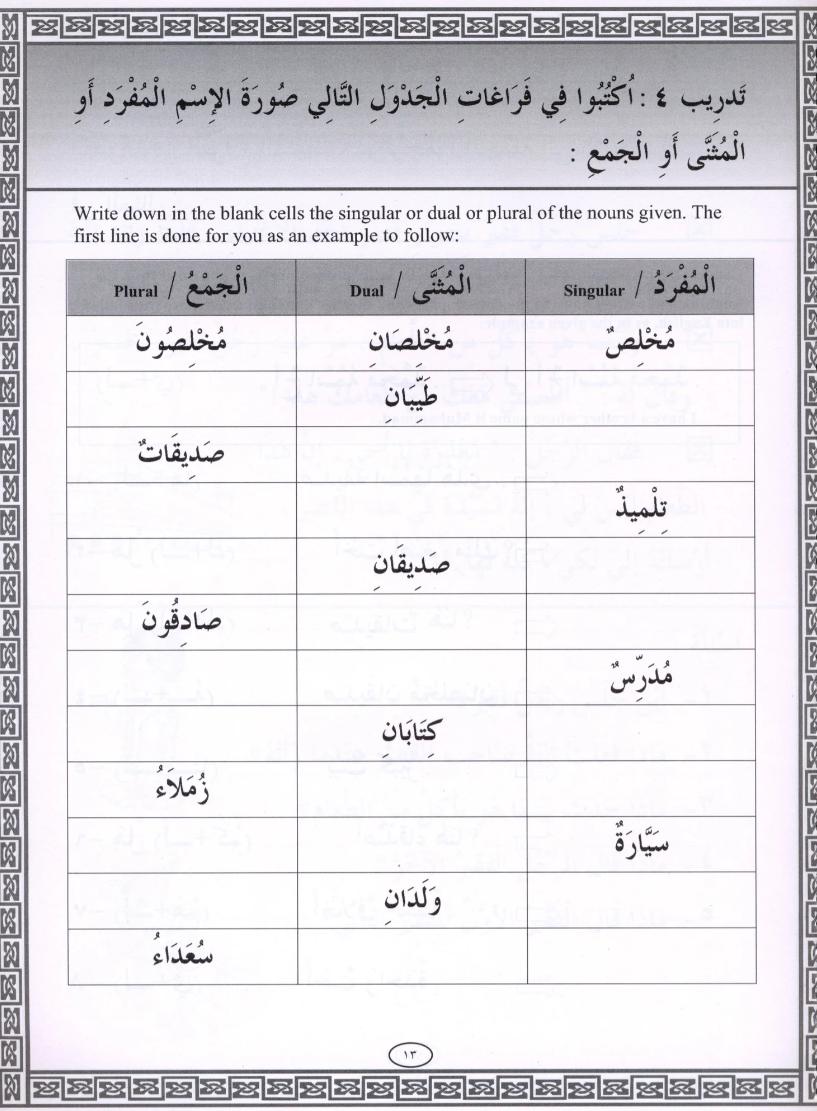 تَدرِيب ٤ : اُكْتُبُوا فِي فَرَاغَاتِ الْجَدْوَلِ التَّالِي صُورَةَ الإِسْمِ الْمُفْرَدِ أَوِ
الْمُثَنَّى أَوِ الْجَمْعِ :
Write down in the blank cells the singular or dual or plural of the nouns given. The
first line is done for you as an example to follow:
الْمُفْرَدُ / Singular الْمُثَنَّى / Dual الْجَمْعُ / Plural
مُخْلِصٌ مُخْلِصَانِ مُخْلِصُونَ
طَيِّبَانِ
صَدِيقَاتٌ
تِلْمِيذٌ
صَدِيقَانِ
صَادِقُونَ
مُدَرِّسٌ
كِتَابَان
زُمَلاَءُ
سَيَّارَةٌ
وَلَدَانِ
سُعَدَاءُ
١٣